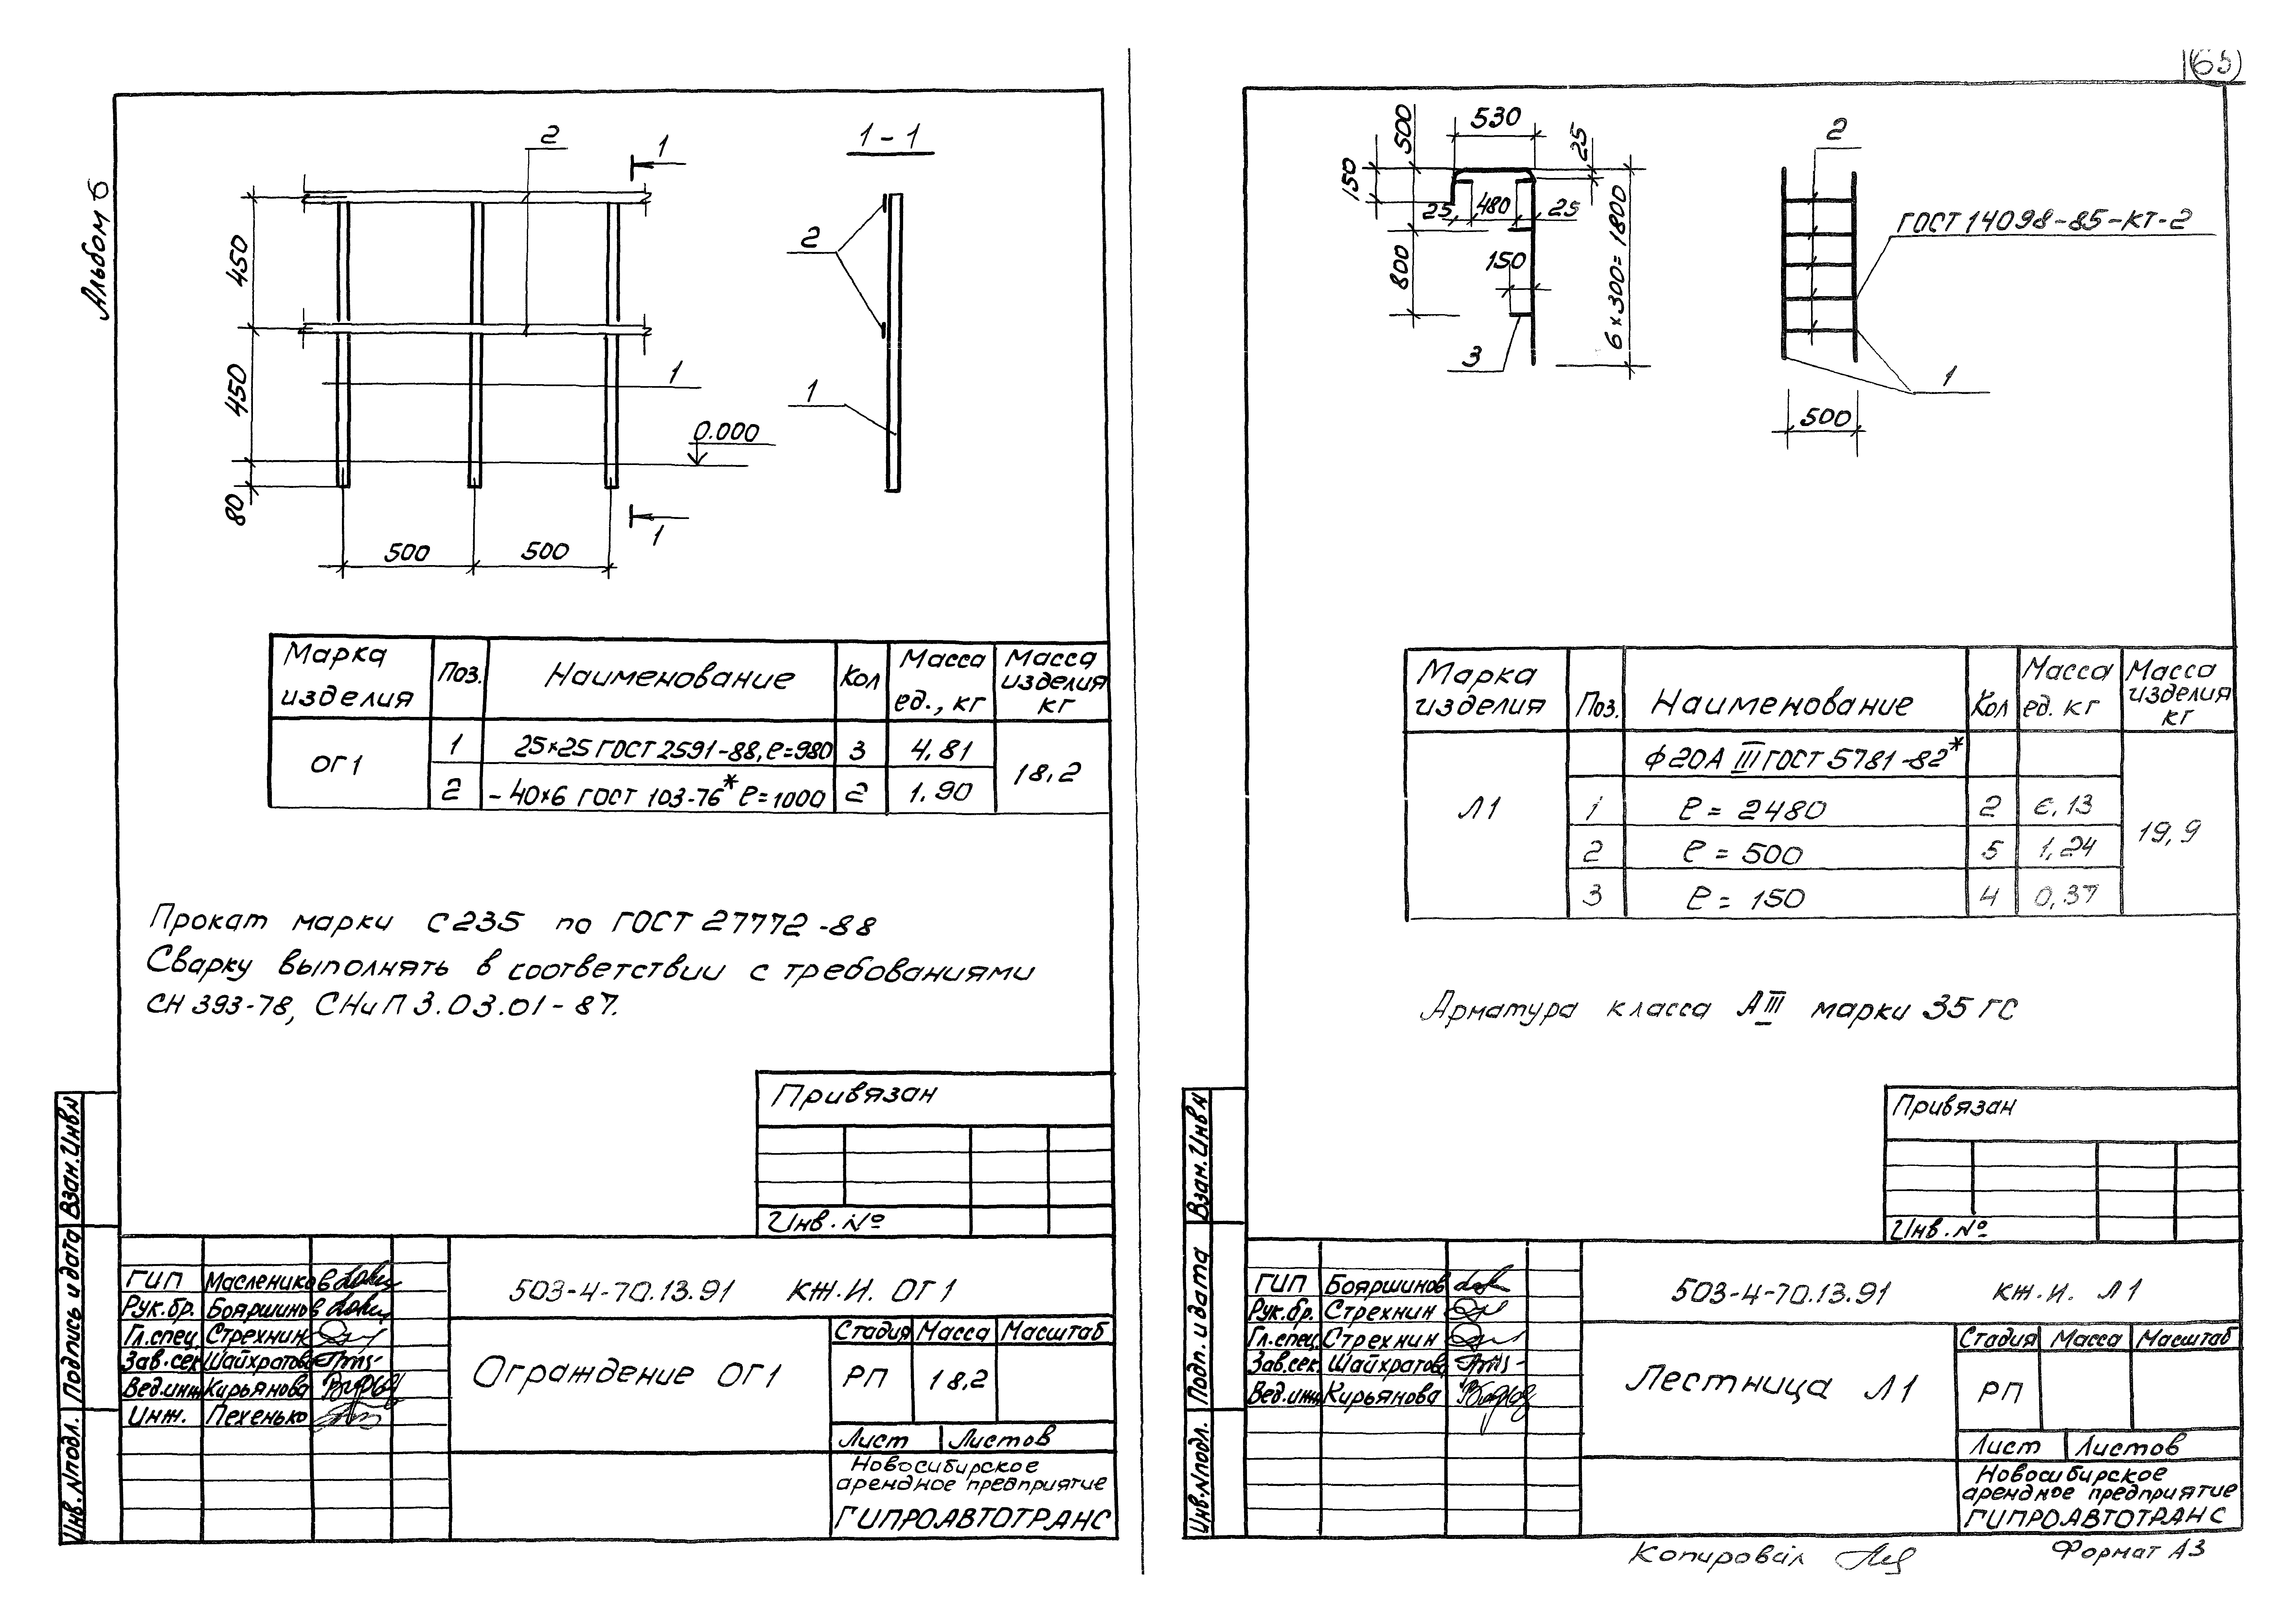 65
Альбом 6
2
1
1-1
450
450
80
2
1
1
0.000
1
500
500
Марка изделия
Поз.
Наименование
Кол
Масса ед., кг
Масса изделия кг
ОГ1
1
25×25 ГОСТ 2591-88, ℓ=980
3
4,81
18,2
2
- 40×6 ГОСТ 103-76* ℓ=1000
2
1.90
Прокат марки С235 по ГОСТ 27772-88
Сварку выполнять в соответствии с требованиями
СН 393-78, СНиП 3.03.01-87.
Привязан
Инв. №
Взан. Инв N
Подпись и дата
Инв. N подл.
ГИП Маслеников
Рук.бр. Бояршинов
Гл.спец. Стрехнин
Зав.сек Шайхратова
Вед.инж Кирьянова
Инж. Пехенько
503-4-70.13.91 КЖ.И. ОГ1
Ограждение ОГ1
Стадия Масса Масштаб
РП 18,2
Лист Листов
Новосибирское
арендное предприятие
ГИПРОАВТОТРАНС
500
530
25
150
25
480
25
800
150
6×300=1800
3
2
ГОСТ 14098-85-КТ-2
1
500
Марка изделия
Поз.
Наименование
Кол
Масса ед. кг
Масса изделия кг
ф20А III ГОСТ 5781-82*
Л1
1
ℓ = 2480
2
6,13
19,9
2
ℓ = 500
5
1,24
3
ℓ = 150
4
0,37
Арматура класса АIII марки 35 ГС
Привязан
Инв. №
Взан. Инв N
Подп. и дата
Инв. N подл.
ГИП Бояршинов
Рук.бр. Стрехнин
Гл.спец. Стрехнин
Зав.сек. Шайхратова
Вед.инж Кирьянова
503-4-70.13.91 КЖ.И. Л1
Лестница Л1
Стадия Масса Масштаб
РП
Лист Листов
Новосибирское
арендное предприятие
ГИПРОАВТОТРАНС
Копировал
Формат А3